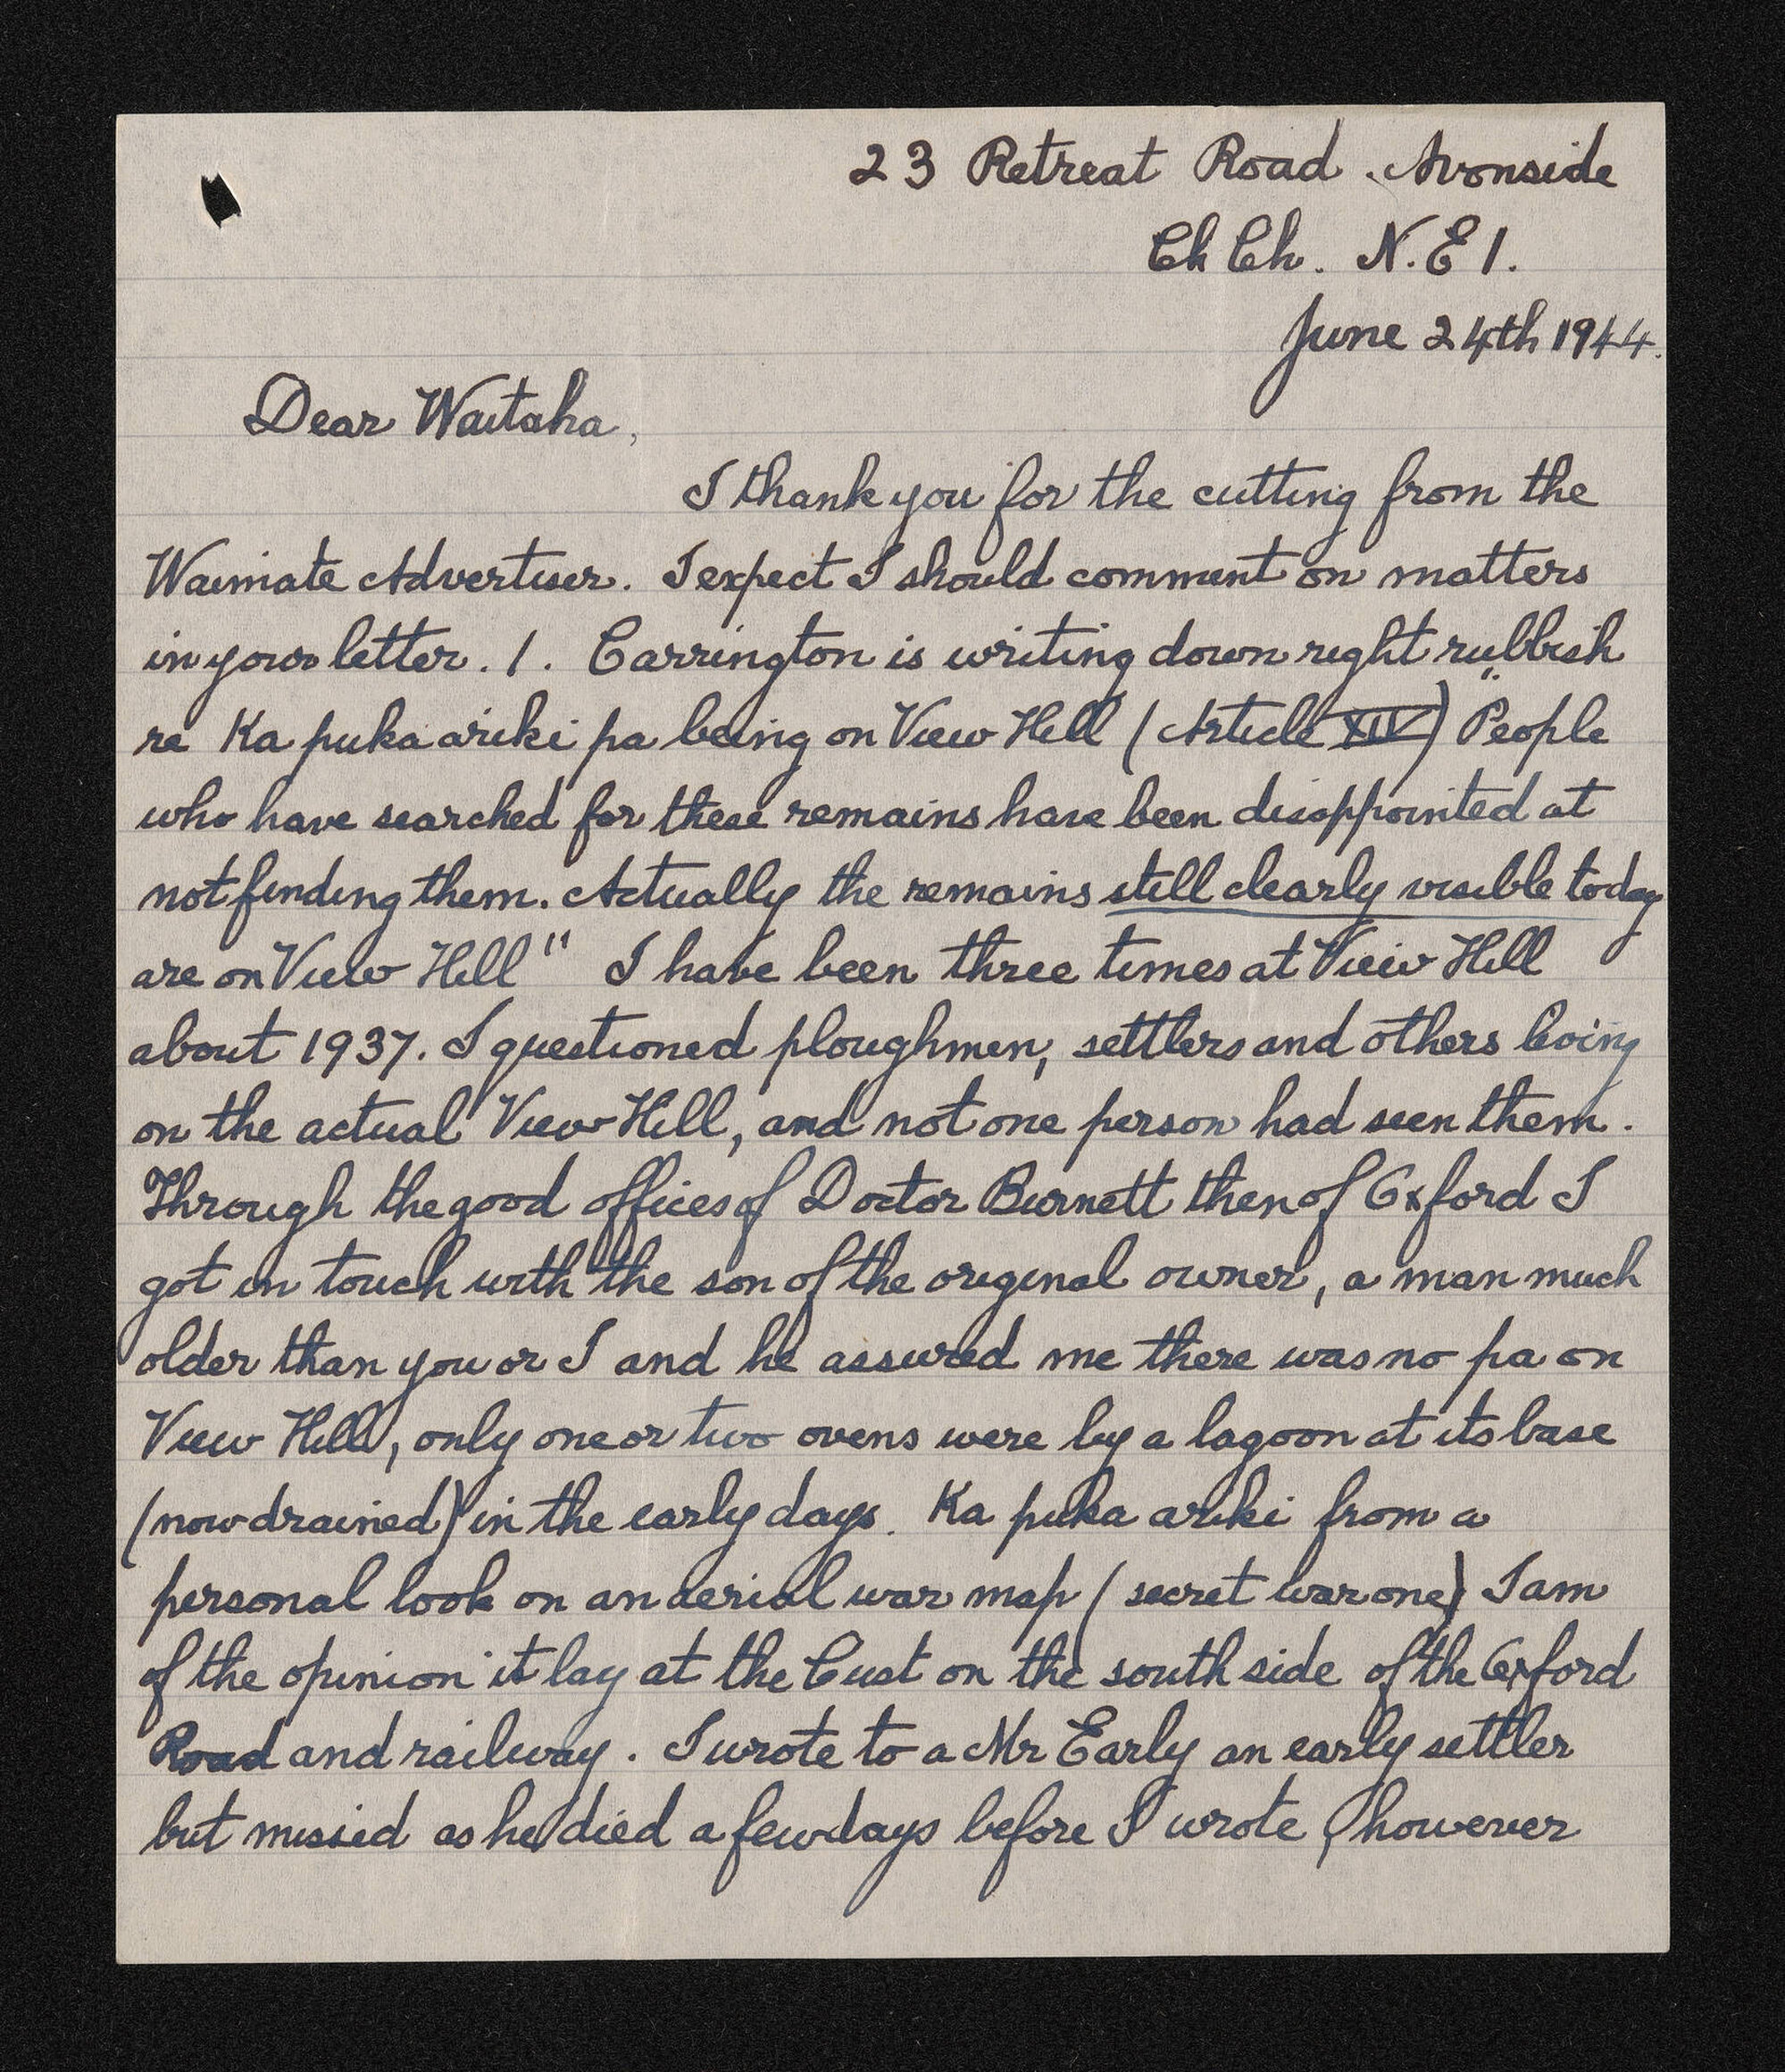 23 Retreat Road. Avonside
Ch Ch. N.E 1.
June 24th 1944.
Dear Waitaha,
I thank you for the cutting from the
Waimate Advertiser. I expect I should comment on matters
in your letter. 1. Carrington is writing down right rubbish
re Ka puka ariki pa being on View Hill (Article XIV) "People
who have searched for these remains have been disappointed at
not finding them. Actually the remains still clearly visible today
are on View Hill" I have been three times at View Hill
about 1937. I questioned ploughmen, settlers and others living
on the actual View Hill, and not one person had seen them.
Through the good offices of Doctor Burnett then of Oxford I
got in touch with the son of the original owner, a man much
older than you or I and he assured me there was no pa on
View Hill, only one or two ovens were by a lagoon at its base
(now drained) in the early days. Ka puka ariki from a
personal look on an aerial war map (secret war one) I am
of the opinion it lay at the Cust on the south side of the Oxford
Road and railway. I wrote to a Mr Early an early settler
but missed as he died a few days before I wrote, however